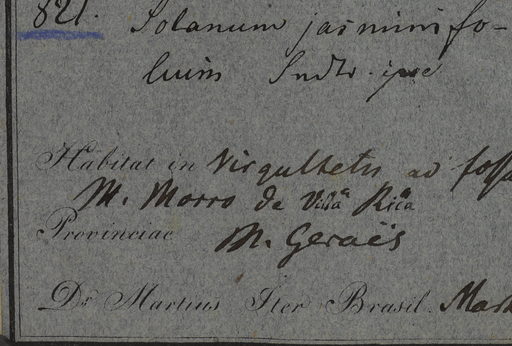 821.
Solanum jasminifo-
lium Sndtr. ipse
Habitat in Virgultetis ad fossa
M. Morro de Villa Rica
Provinciae M. Geraës
Dr. Martius Iter Brasil. Mart